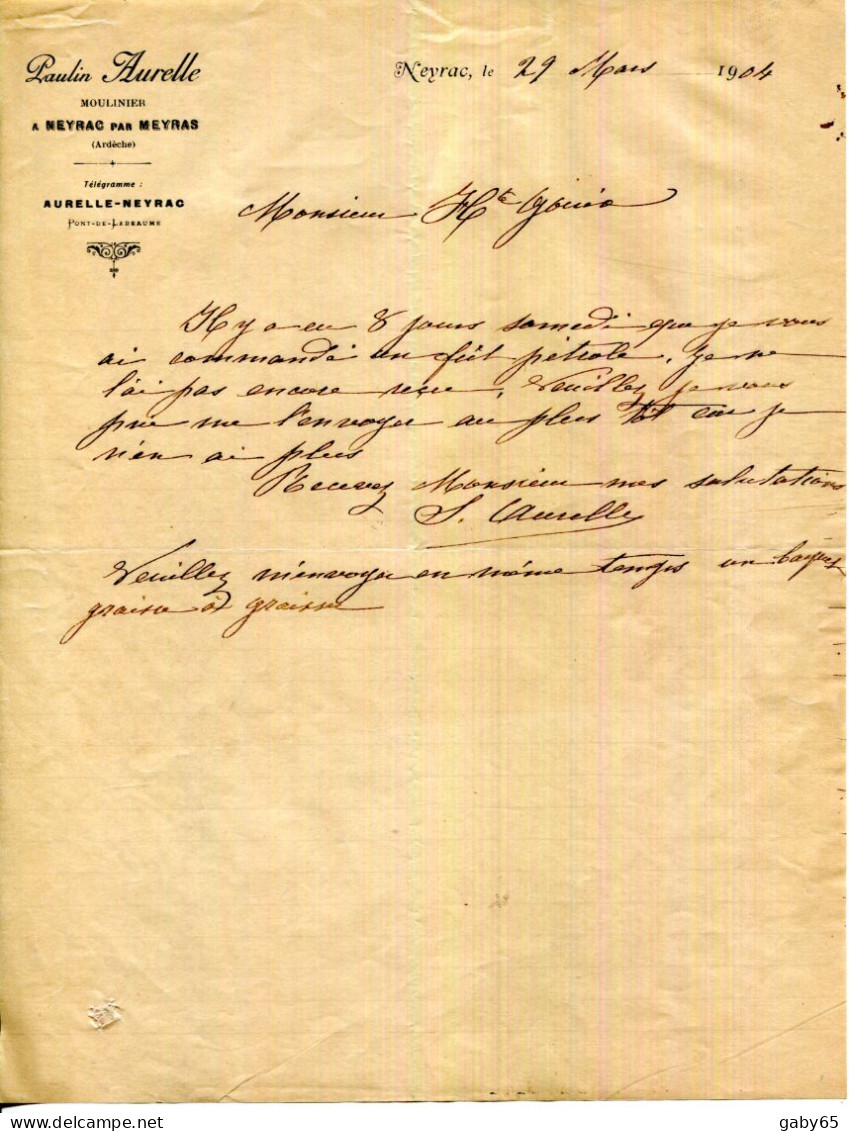 Paulin Aurelle
MOULINIER
A NEYRAC PAR MEYRAS
(Ardèche)
Télégramme :
AURELLE-NEYRAC
PONT-DE-LABEAUME
Neyrac, le 29 Mars 1904
Monsieur Hte
Il y a eu 8 jours samedi que je vous
ai commandé un fût pétrole, je ne
l'ai pas encore reçu, Veuillez je vous
prie me l'envoyer au plus tôt car je
n'en ai plus
Recevez Monsieur mes salutations
Aurelle
Veuillez m'envoyer en même temps un
graisse à
gaby65